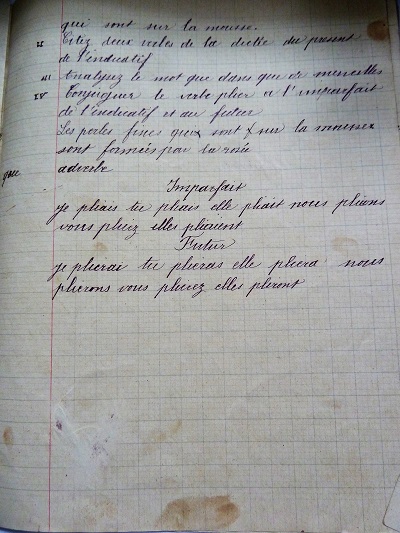 qui sont sur la mousse.
II Citez deux verbes de la dictée du présent
de l'indicatif
III Analysez le mot que dans que de merveilles
IV Conjuguer le verbe plier a l'imparfait
de l'indicatif et au futur
Les perles fines qui sont sur la mousse
sont formées par la rosée
que adverbe
Imparfait
je pliais tu pliais elle pliait nous pliions
vous pliiez elles pliaient
Futur
je plierai tu plieras elle pliera nous
plierons vous plierez elles pliront